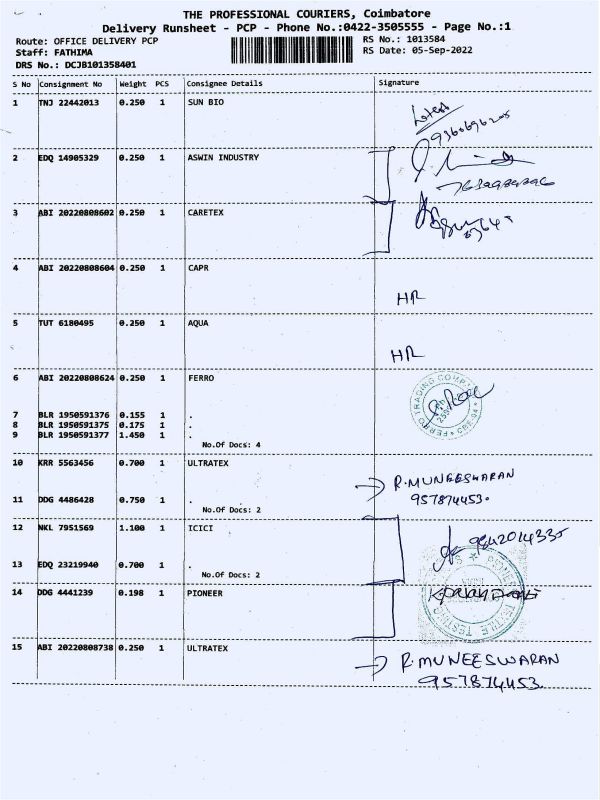 THE PROFESSIONAL COURIERS, Coimbatore
Delivery Runsheet - PCP - Phone No.:0422-3505555 - Page No.:1
Route: OFFICE DELIVERY PCP
RS No.: 1013584
Staff: FATHIMA
RS Date: 05-Sep-2022
DRS No.: DCJB101358401
S No Consignment No Weight PCS Consignee Details Signature
1 TNJ 22442013 0.250 1 SUN BIO
2 EDQ 14905329 0.250 1 ASWIN INDUSTRY
3 ABI 20220808602 0.250 1 CARETEX
4 ABI 20220808604 0.250 1 CAPR
HR
5 TUT 6180495 0.250 1 AQUA
HR
6 ABI 20220808624 0.250 1 FERRO
FERRO TRADING COMPANY
7 BLR 1950591376 0.155 1 .
8 BLR 1950591375 0.175 1 .
9 BLR 1950591377 1.450 1 .
No.Of Docs: 4
10 KRR 5563456 0.700 1 ULTRATEX
R.MUNEESWARAN
957874453.
11 DDG 4486428 0.750 1 .
No.Of Docs: 2
12 NKL 7951569 1.100 1 ICICI
9842014335
13 EDQ 23219940 0.700 1 .
No.Of Docs: 2
14 DDG 4441239 0.198 1 PIONEER
15 ABI 20220808738 0.250 1 ULTRATEX
R.MUNEESWARAN
957874453.